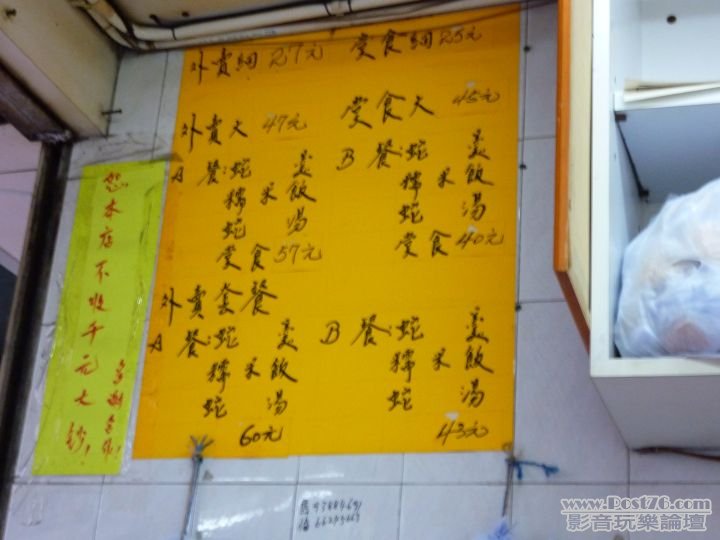 外賣細 27元 堂食細 25元
外賣大 47元 堂食大 45元
A 餐:蛇羹 B 餐:蛇羹
糯米飯 糯米飯
蛇湯 蛇湯
堂食 57元 堂食 40元
外賣套餐
A 餐:蛇羹 B 餐:蛇羹
糯米飯 糯米飯
蛇湯 蛇湯
60元 43元
恕本店不收千元大鈔!
多謝合作!
www.Post76.com
影音玩樂論壇